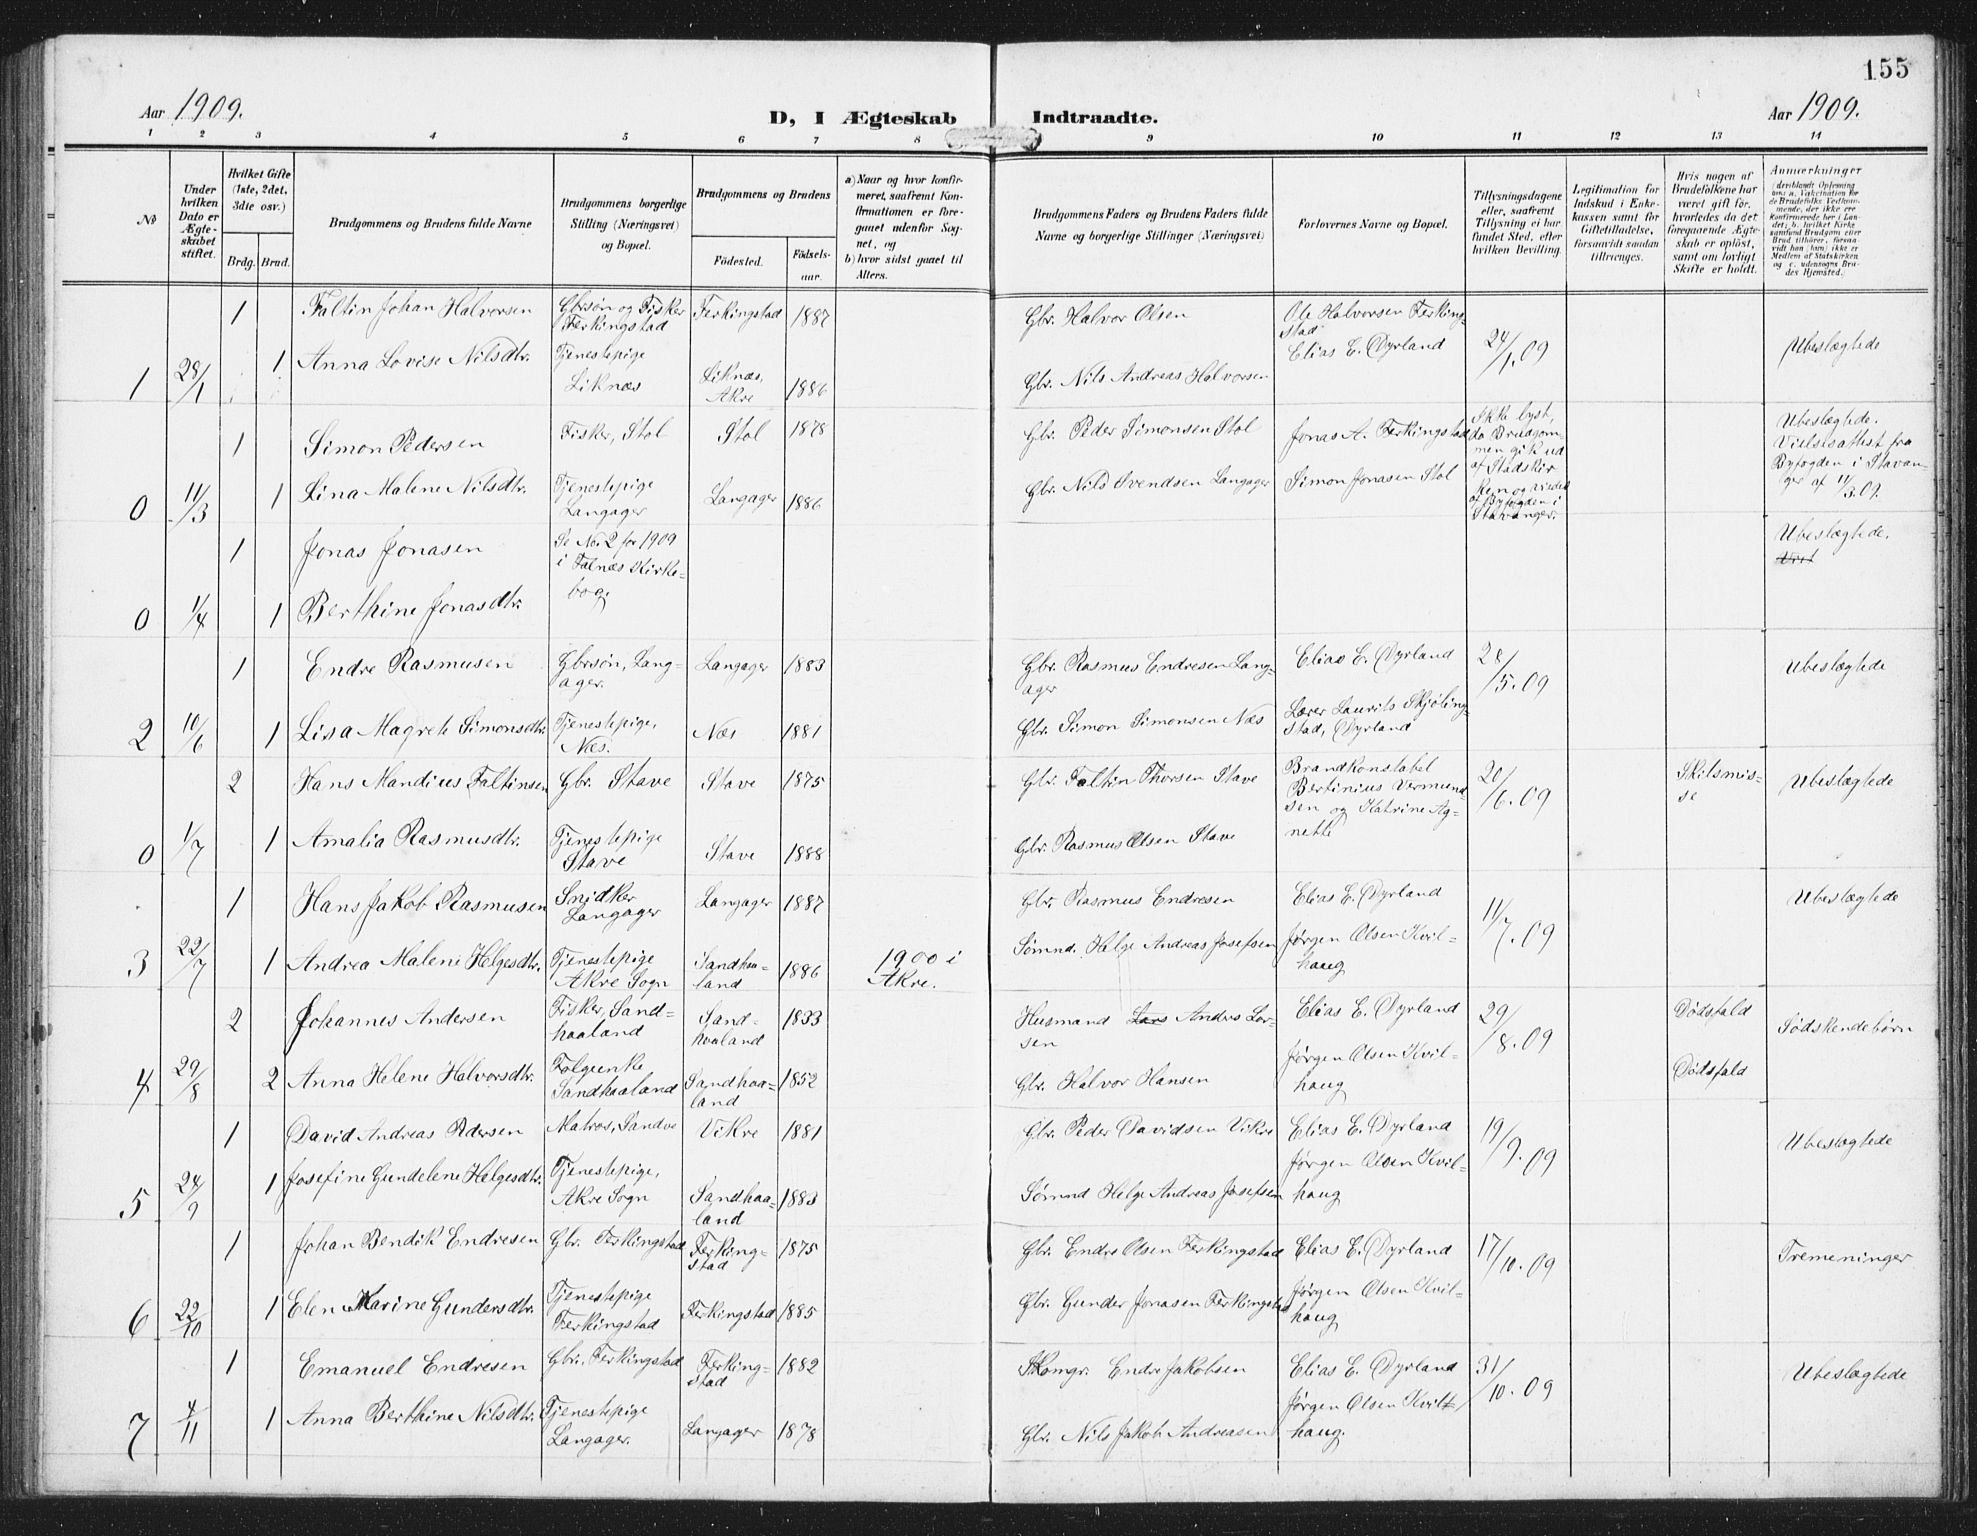 155
Aar 1909.
D, I Ægteskab Indtraadte.
Aar 1909.
1 2 3 4 5 6 7 8 9 10 11 12 13 14
No
Under hvilken Dato er Ægteskabet stiftet.
Hvilket Gifte (1ste, 2det, 3die osv.)
Brdg. Brud.
Brudgommens og Brudens fulde Navne
Brudgommens borgerlige Stilling (Næringsvei) og Bopæl.
Brudgommens og Brudens
Fødested.
Fødselsaar.
a) Naar og hvor konfirmeret, saafremt Konfirmationen er foregaaet udenfor Sognet, og
b) hvor sidst gaaet til Alters.
Brudgommens Faders og Brudens Faders fulde Navne og borgerlige Stillinger (Næringsvei)
Forlovernes Navne og Bopæl.
Tillysningsdagene eller, saafremt Tillysning ei har fundet Sted, efter hvilken Bevilling.
Legitimation for Indskud i Enkekassen samt for Giftetilladelse, forsaavidt saadan tiltrænges.
Hvis nogen af Brudefolkene har været gift før, hvorledes da det foregaaende Ægteskab er opløst, samt om lovligt Skifte er holdt.
Anmærkninger
1 Faltin Johan Halvorsen Gbrsøn og Fisker Ferkingstad Ferkingstad 1887 Gbr. Halvor Olsen Ole Halvorsen Ferkingstad
1 28/1 1 Anna Lovise Nilsdtr. Tjenestepige Liknæs Liknæs, Akre 1886 Gbr. Nils Andreas Halvorsen Elias E. Dyrland 24/1.09 Ubeslægtede
1 Simon Pedersen Fisker, Stol Stol 1878 Gbr. Peder Simonsen Stol Jonas A. Ferkingstad Ikke lyst, da Brudgommen gik ud af Statskirken og viedes af Byfogden i Stavanger. Ubeslægtede. Vielsesattest fra Byfogden i Stavanger af 11/3.09.
0 11/3 1 Lina Malene Nilsdtr. Tjenestepige Langager Langager 1886 Gbr. Nils Svendsen Langager Simon Jonasen Stol
1 Jonas Jonasen Se No. 2 for 1909 i Falnæs Kirkebog. Ubeslægtede.
0 1/4 1 Berthine Jonasdtr.
1 Endre Rasmusen Gbrsøn, Langager. Langager 1883 Gbr. Rasmus Endresen Langager Elias E. Dyrland 28/5.09 Ubeslægtede
2 10/6 1 Lisa Magrete Simonsdtr. Tjenestepige, Næs. Næs 1881 Gbr. Simon Simonsen Næs Lærer Laurits Skjølingstad, Dyrland
2 Hans Mandius Faltinsen Gbr. Stave Stave 1875 Gbr. Faltin Thorsen Stave Brandkonstabel Bertinius Vermundsen og Katrine Agnette 20/6.09 Skilsmisse Ubeslægtede
0 1/7 1 Amalia Rasmusdtr. Tjenestepige Stave Stave 1888 Gbr. Rasmus Olsen Stave
1 Hans Jakob Rasmusen Snidker Langager Langager 1887 Gbr. Rasmus Endresen Elias E. Dyrland 11/7.09 Ubeslægtede
3 22/7 1 Andrea Malene Helgesdtr. Tjenestepige Akre Sogn Sandhaaland 1886 1900 i Akre. Sømnd. Helge Andreas Josefsen Jørgen Olsen Kvilhaug
2 Johannes Andersen Fisker, Sandhaaland Sandhaaland 1833 Husmand Lars Anders Larsen Elias E. Dyrland 29/8.09 Dødsfald Sødskendebørn
4 29/8 2 Anna Helene Halvorsdtr. Følgeenke Sandhaaland Sandhaaland 1852 Gbr. Halvor Hansen Jørgen Olsen Kvilhaug Dødsfald
1 David Andreas Pedersen Matros, Sandve Vikre 1881 Gbr. Peder Davidsen Vikre Elias E. Dyrland 19/9.09 Ubeslægtede
5 24/9 1 Josefine Gundelene Helgesdtr. Tjenestepige, Akre Sogn Sandhaaland 1883 Sømnd Helge Andreas Josefsen Jørgen Olsen Kvilhaug
1 Johan Bendik Endresen Gbr. Ferkingstad Ferkingstad 1875 Gbr. Endre Olsen Ferkingstad Elias E. Dyrland 17/10.09 Tremeninger
6 22/10 1 Elen Karine Gundersdtr. Tjenestepige Ferkingstad Ferkingstad 1885 Gbr. Gunder Jonasen Ferkingstad Jørgen Olsen Kvilhaug
1 Emanuel Endresen Gbr. Ferkingstad Ferkingstad 1882 Skomgr. Endre Jakobsen Elias E. Dyrland 31/10.09 Ubeslægtede
7 4/11 1 Anna Berthine Nilsdtr. Tjenestepige Langager. Langager 1878 Gbr. Nils Jakob Andreasen Jørgen Olsen Kvilhaug.